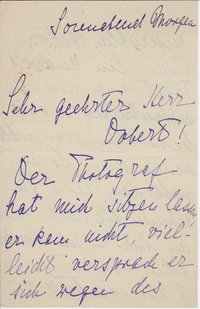 Sonnabend Morgen
Sehr geehrter Herr
Dobert!
Der Photograf
hat mich sitzen lassen,
er kam nicht, viel-
leicht versprach er
sich wegen des